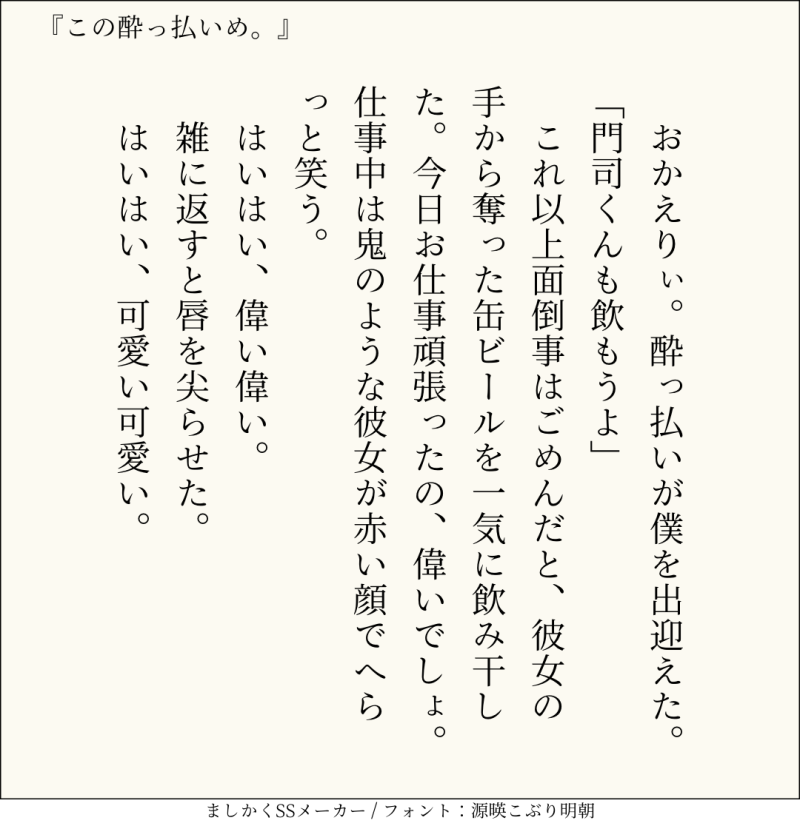 『この酔っ払いめ。』
おかえりぃ。酔っ払いが僕を出迎えた。
「門司くんも飲もうよ」
これ以上面倒事はごめんだと、彼女の
手から奪った缶ビールを一気に飲み干し
た。今日お仕事頑張ったの、偉いでしょ。
仕事中は鬼のような彼女が赤い顔でへら
っと笑う。
はいはい、偉い偉い。
雑に返すと唇を尖らせた。
はいはい、可愛い可愛い。
ましかくSSメーカー / フォント：源暎こぶり明朝